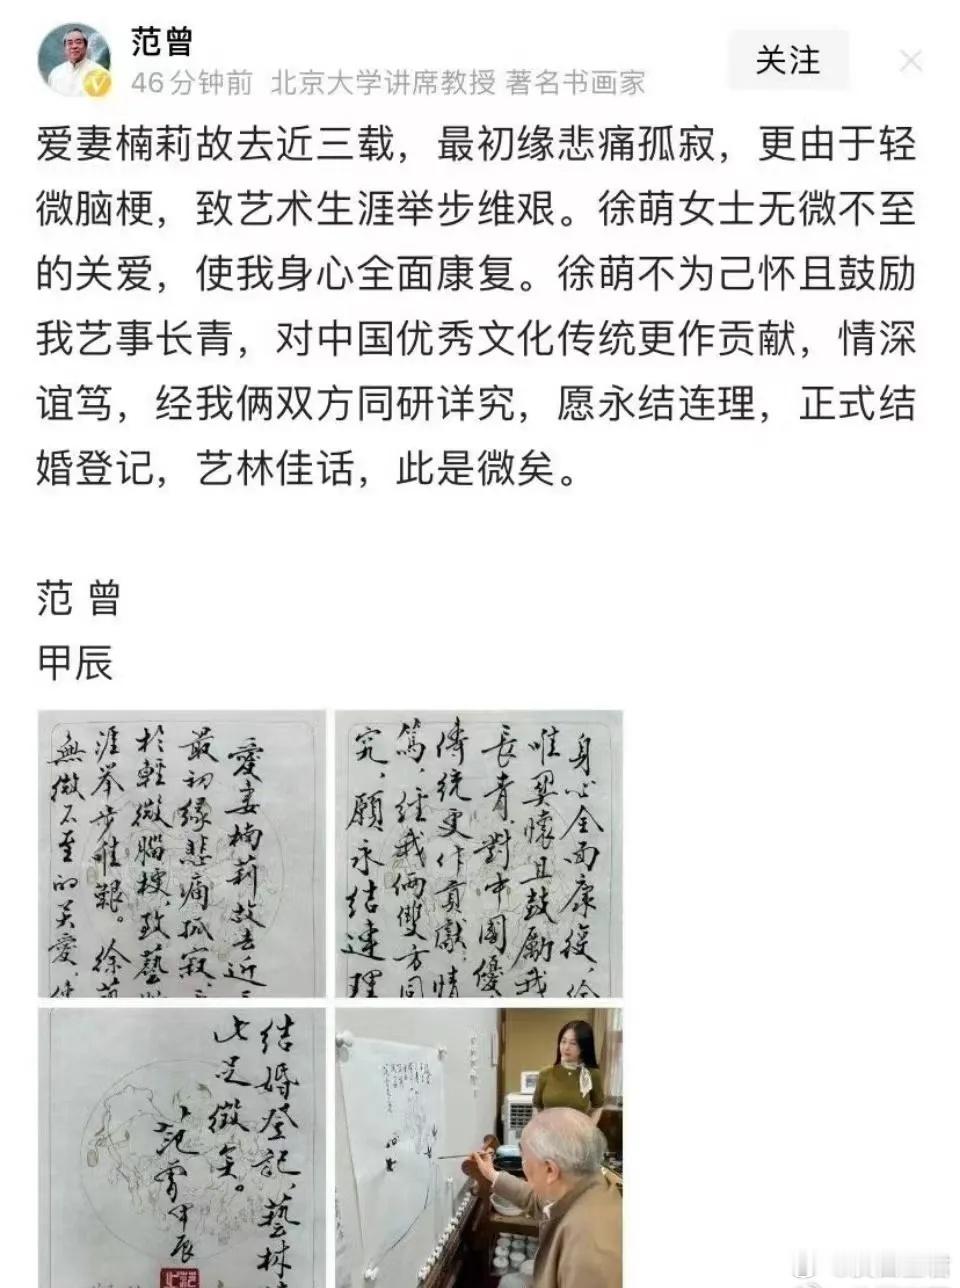 范曾
46分钟前 北京大学讲席教授 著名书画家
关注
爱妻楠莉故去近三载，最初缘悲痛孤寂，更由于轻
微脑梗，致艺术生涯举步维艰。徐萌女士无微不至
的关爱，使我身心全面康复。徐萌不为己怀且鼓励
我艺事长青，对中国优秀文化传统更作贡献，情深
谊笃，经我俩双方同研详究，愿永结连理，正式结
婚登记，艺林佳话，此是微矣。
范 曾
甲辰
愛妻楠莉故去近
最初缘悲痛孤寂，
於輕微腦梗，致藝
涯举步維艱。徐
無微不至的关愛，
身心全面康復，
懷且鼓勵我
長青，對中國優
傳統更作貢獻，情
篤，經我倆雙方同
究，願永结連理
结婚登記，藝林
此足徵矣。
范曾甲辰